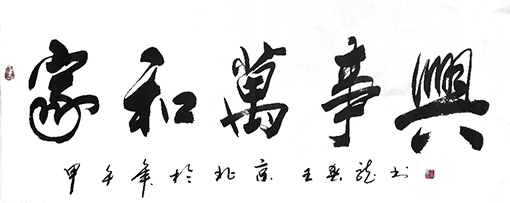 家和萬事興
甲午年於北京 王 龍書